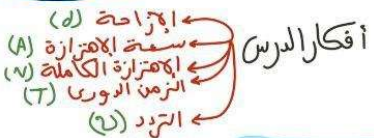 أفكار الدرس
الإزاحة (d)
سعة الاهتزازة (A)
الاهتزازة الكاملة (N)
الزمن الدورى (T)
التردد (υ)